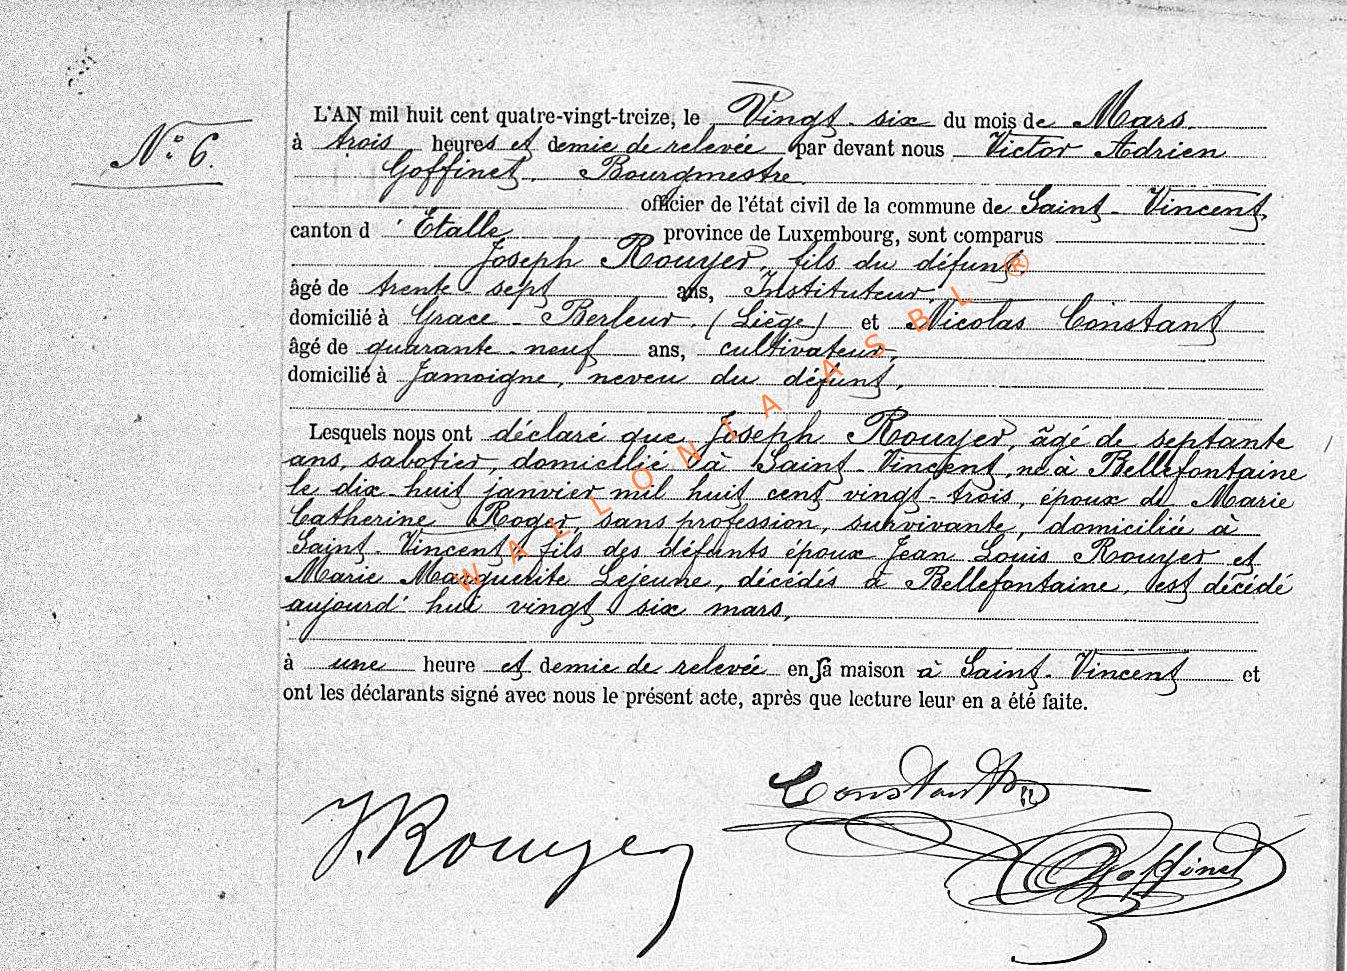 N° 6.
L'AN mil huit cent quatre-vingt-treize, le Vingt-six du mois de Mars.
à trois heures et demie de relevée par devant nous Victor Adrien
Goffinet, Bourgmestre
officier de l'état civil de la commune de Saint-Vincent,
canton d'Etalle province de Luxembourg, sont comparus
Joseph Rouyer, fils du défunt
âgé de trente-sept ans, Instituteur,
domicilié à Grace-Berleur (Liège) et Nicolas Constant
âgé de quarante-neuf ans, cultivateur,
domicilié à Jamoigne, neveu du défunt,
Lesquels nous ont déclaré que Joseph Rouyer, âgé de septante
ans, sabotier, domicilié à Saint-Vincent, né à Bellefontaine
le dix-huit janvier mil huit cent vingt-trois, époux de Marie
Catherine Roger, sans profession, survivante, domiciliée à
Saint-Vincent, fils des défunts époux Jean Louis Rouyer et
Marie Marguerite Lejeune, décédés à Bellefontaine, est décédé
aujourd'hui vingt six mars,
à une heure et demie de relevée en sa maison à Saint-Vincent et
ont les déclarants signé avec nous le présent acte, après que lecture leur en a été faite.
Constant
J. Rouyer
Goffinet
WALLONIA ASBL ®